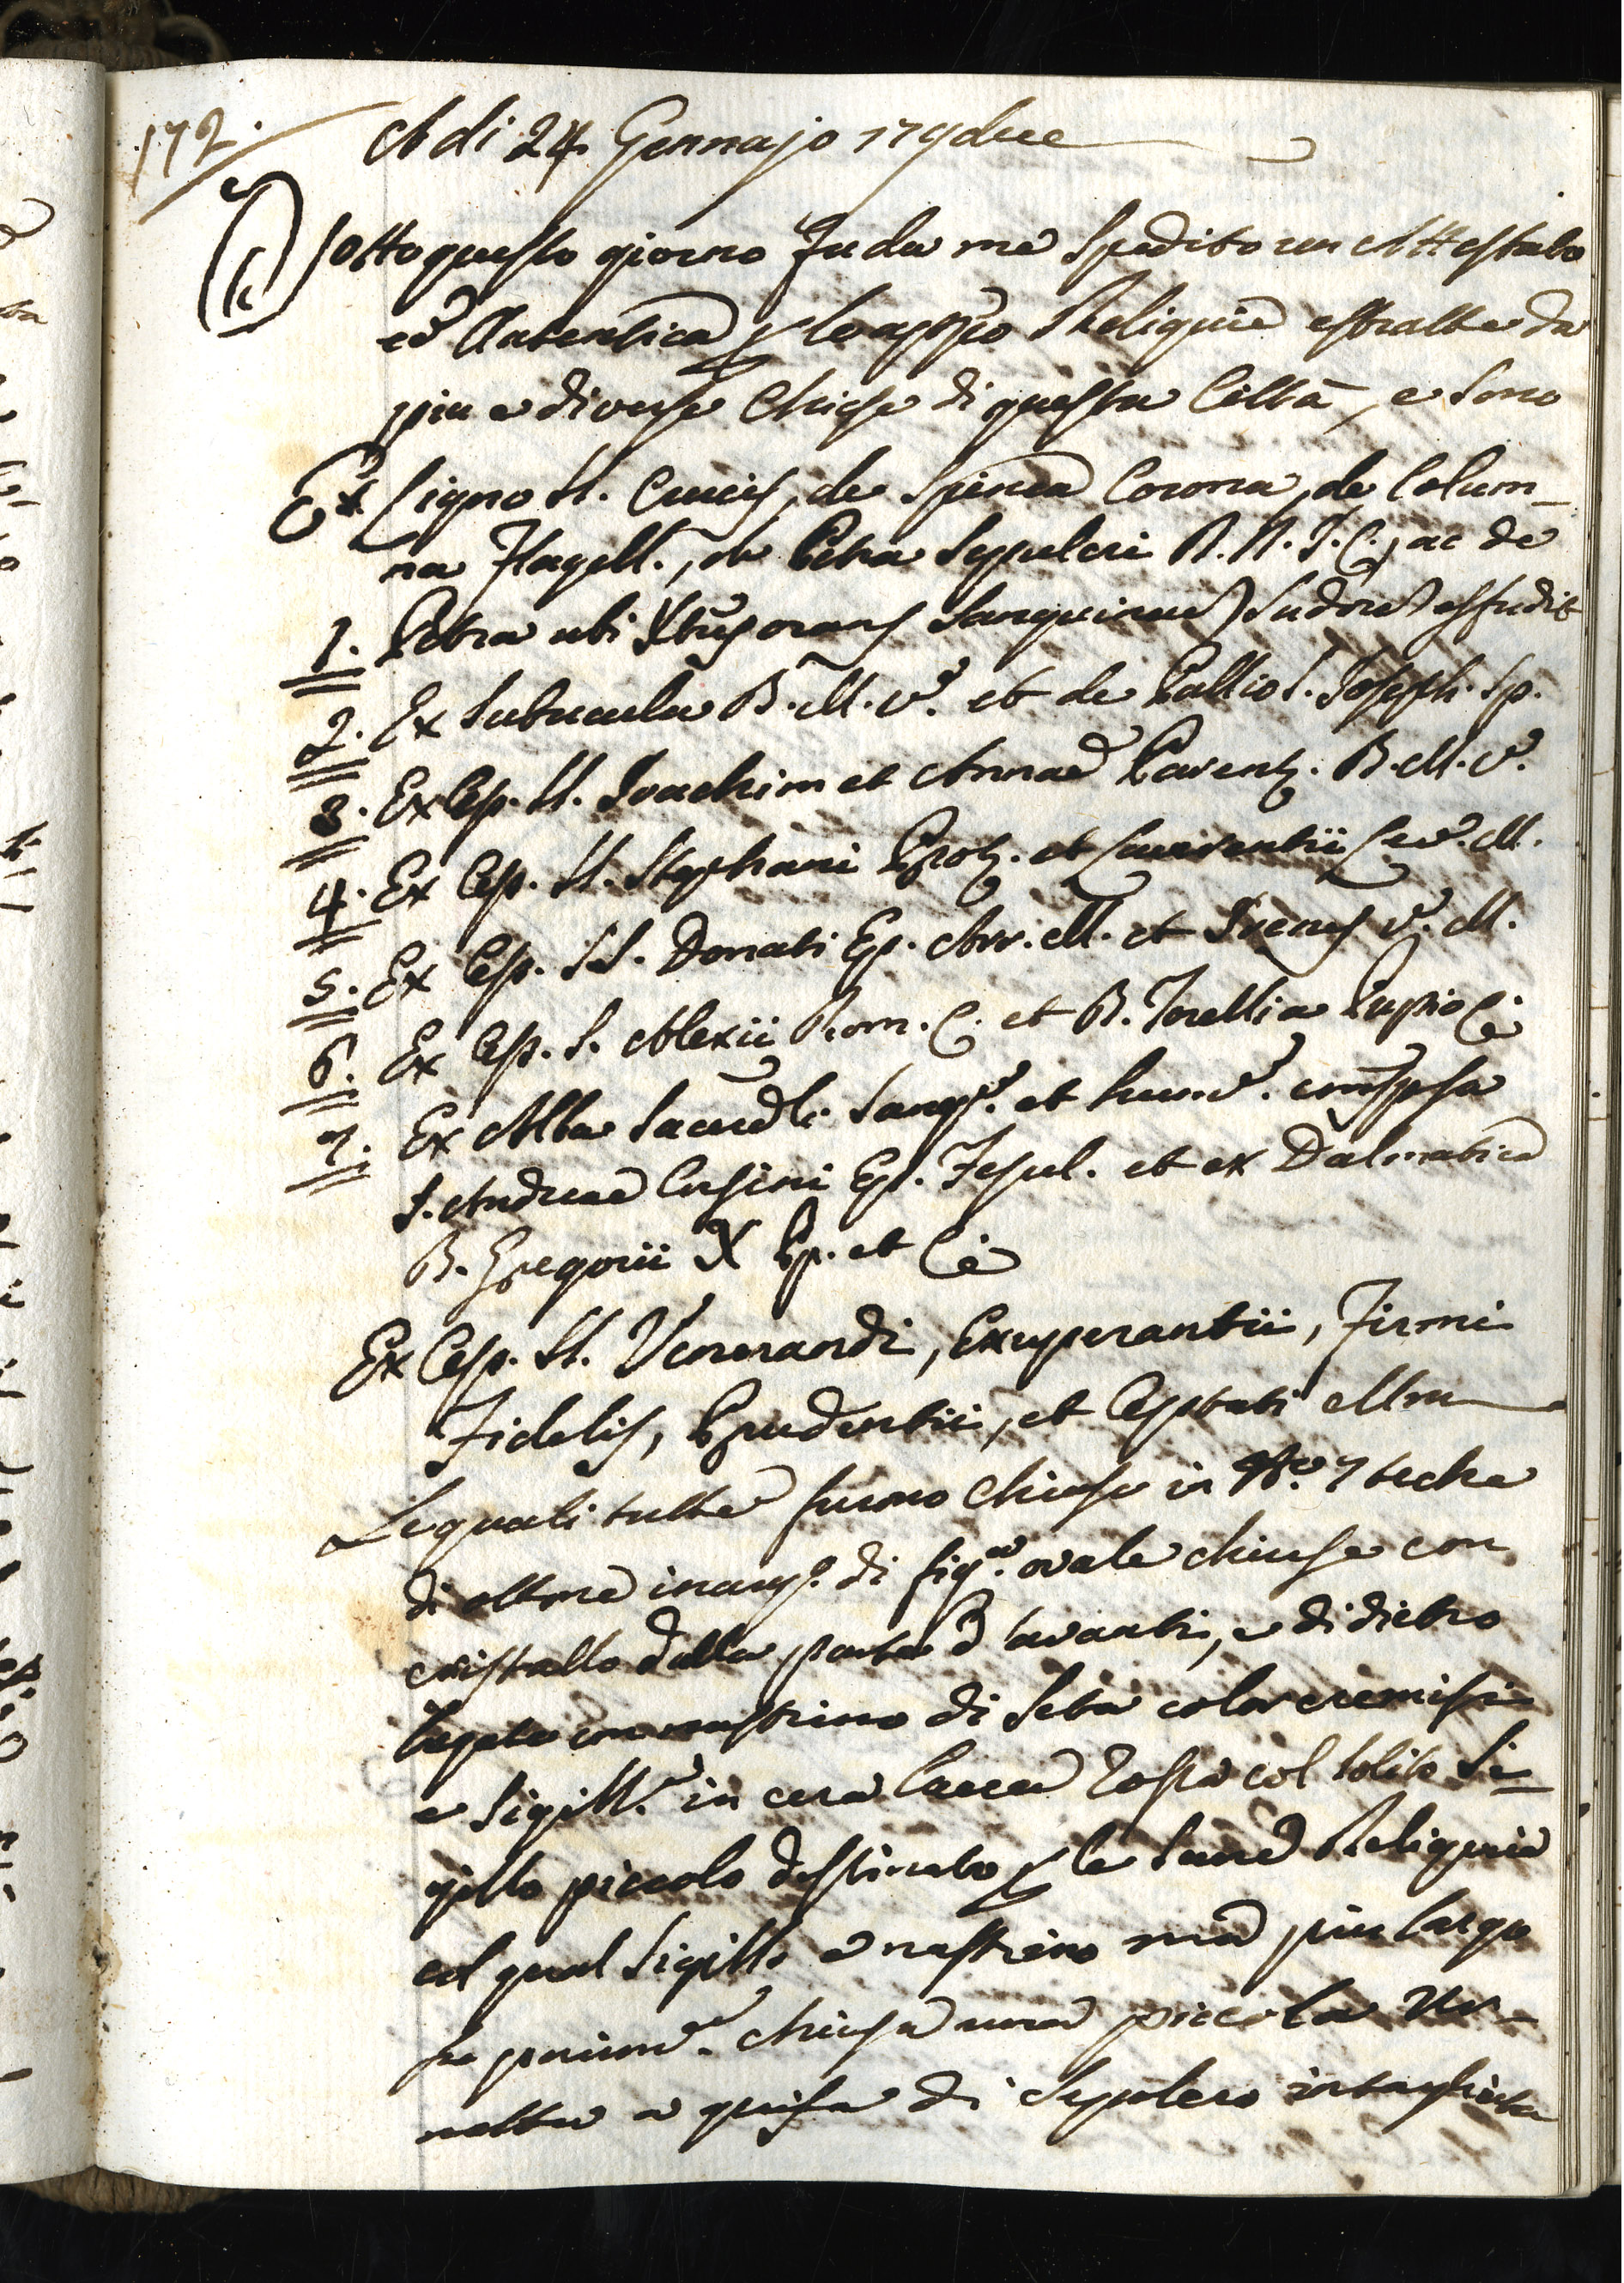 172.
A di 24 Gennajo 179due
Sotto questo giorno fu da me spedito un Attestato
ed Autentica per le apppo Reliquie estratte da
piu e diverse Chiese di questa Città, e sono
Ex Ligno SS. Crucis, de Spinea Corona, de Colum-
na Flagell., de Petra Sepulcri D. N. J. C., ac de
1. Petra ubi Xtus orans Sanguineum Sudorem effudit
2. Ex Subucula B. M. V. et de Pallio S. Joseph. Sp.
3. Ex Ossp. SS. Joachim et Annae Parent. B. M. V.
4. Ex Ossp. SS. Stephani Prot. et Laurentii Lev. M.
5. Ex Ossp. SS. Donati Ep. Arr. M. et Irenes V. M.
6. Ex Ossp. S. Alexii Rom. C. et B. Torelli a Puppio C.
7. Ex Alba Sacerdli. Sang. et
S. Andreae Cursini Ep. Fesul. et ex Dalmatica
B. Gregorii X Pp. et C.
Ex Ossp. SS. Venerandi, Exuperantii, Firmi
Fidelis, Prudentii, et Optati Mm
Le quali tutte furono chiuse in No. 7 teche
di ottone inarg.o di fig.a ovale chiuse con
cristallo dalla parte d'avanti, e di dietro
legate con nastrino di Seta color cremisi
e sigill.e in cera lacca rossa col solito Si-
gillo piccolo destinato per le Sante Reliquie
col qual Sigillo e nastrino ma piu largo
fu parimte. chiusa una piccola Ur-
netta a guisa di Sepolcro intagliata